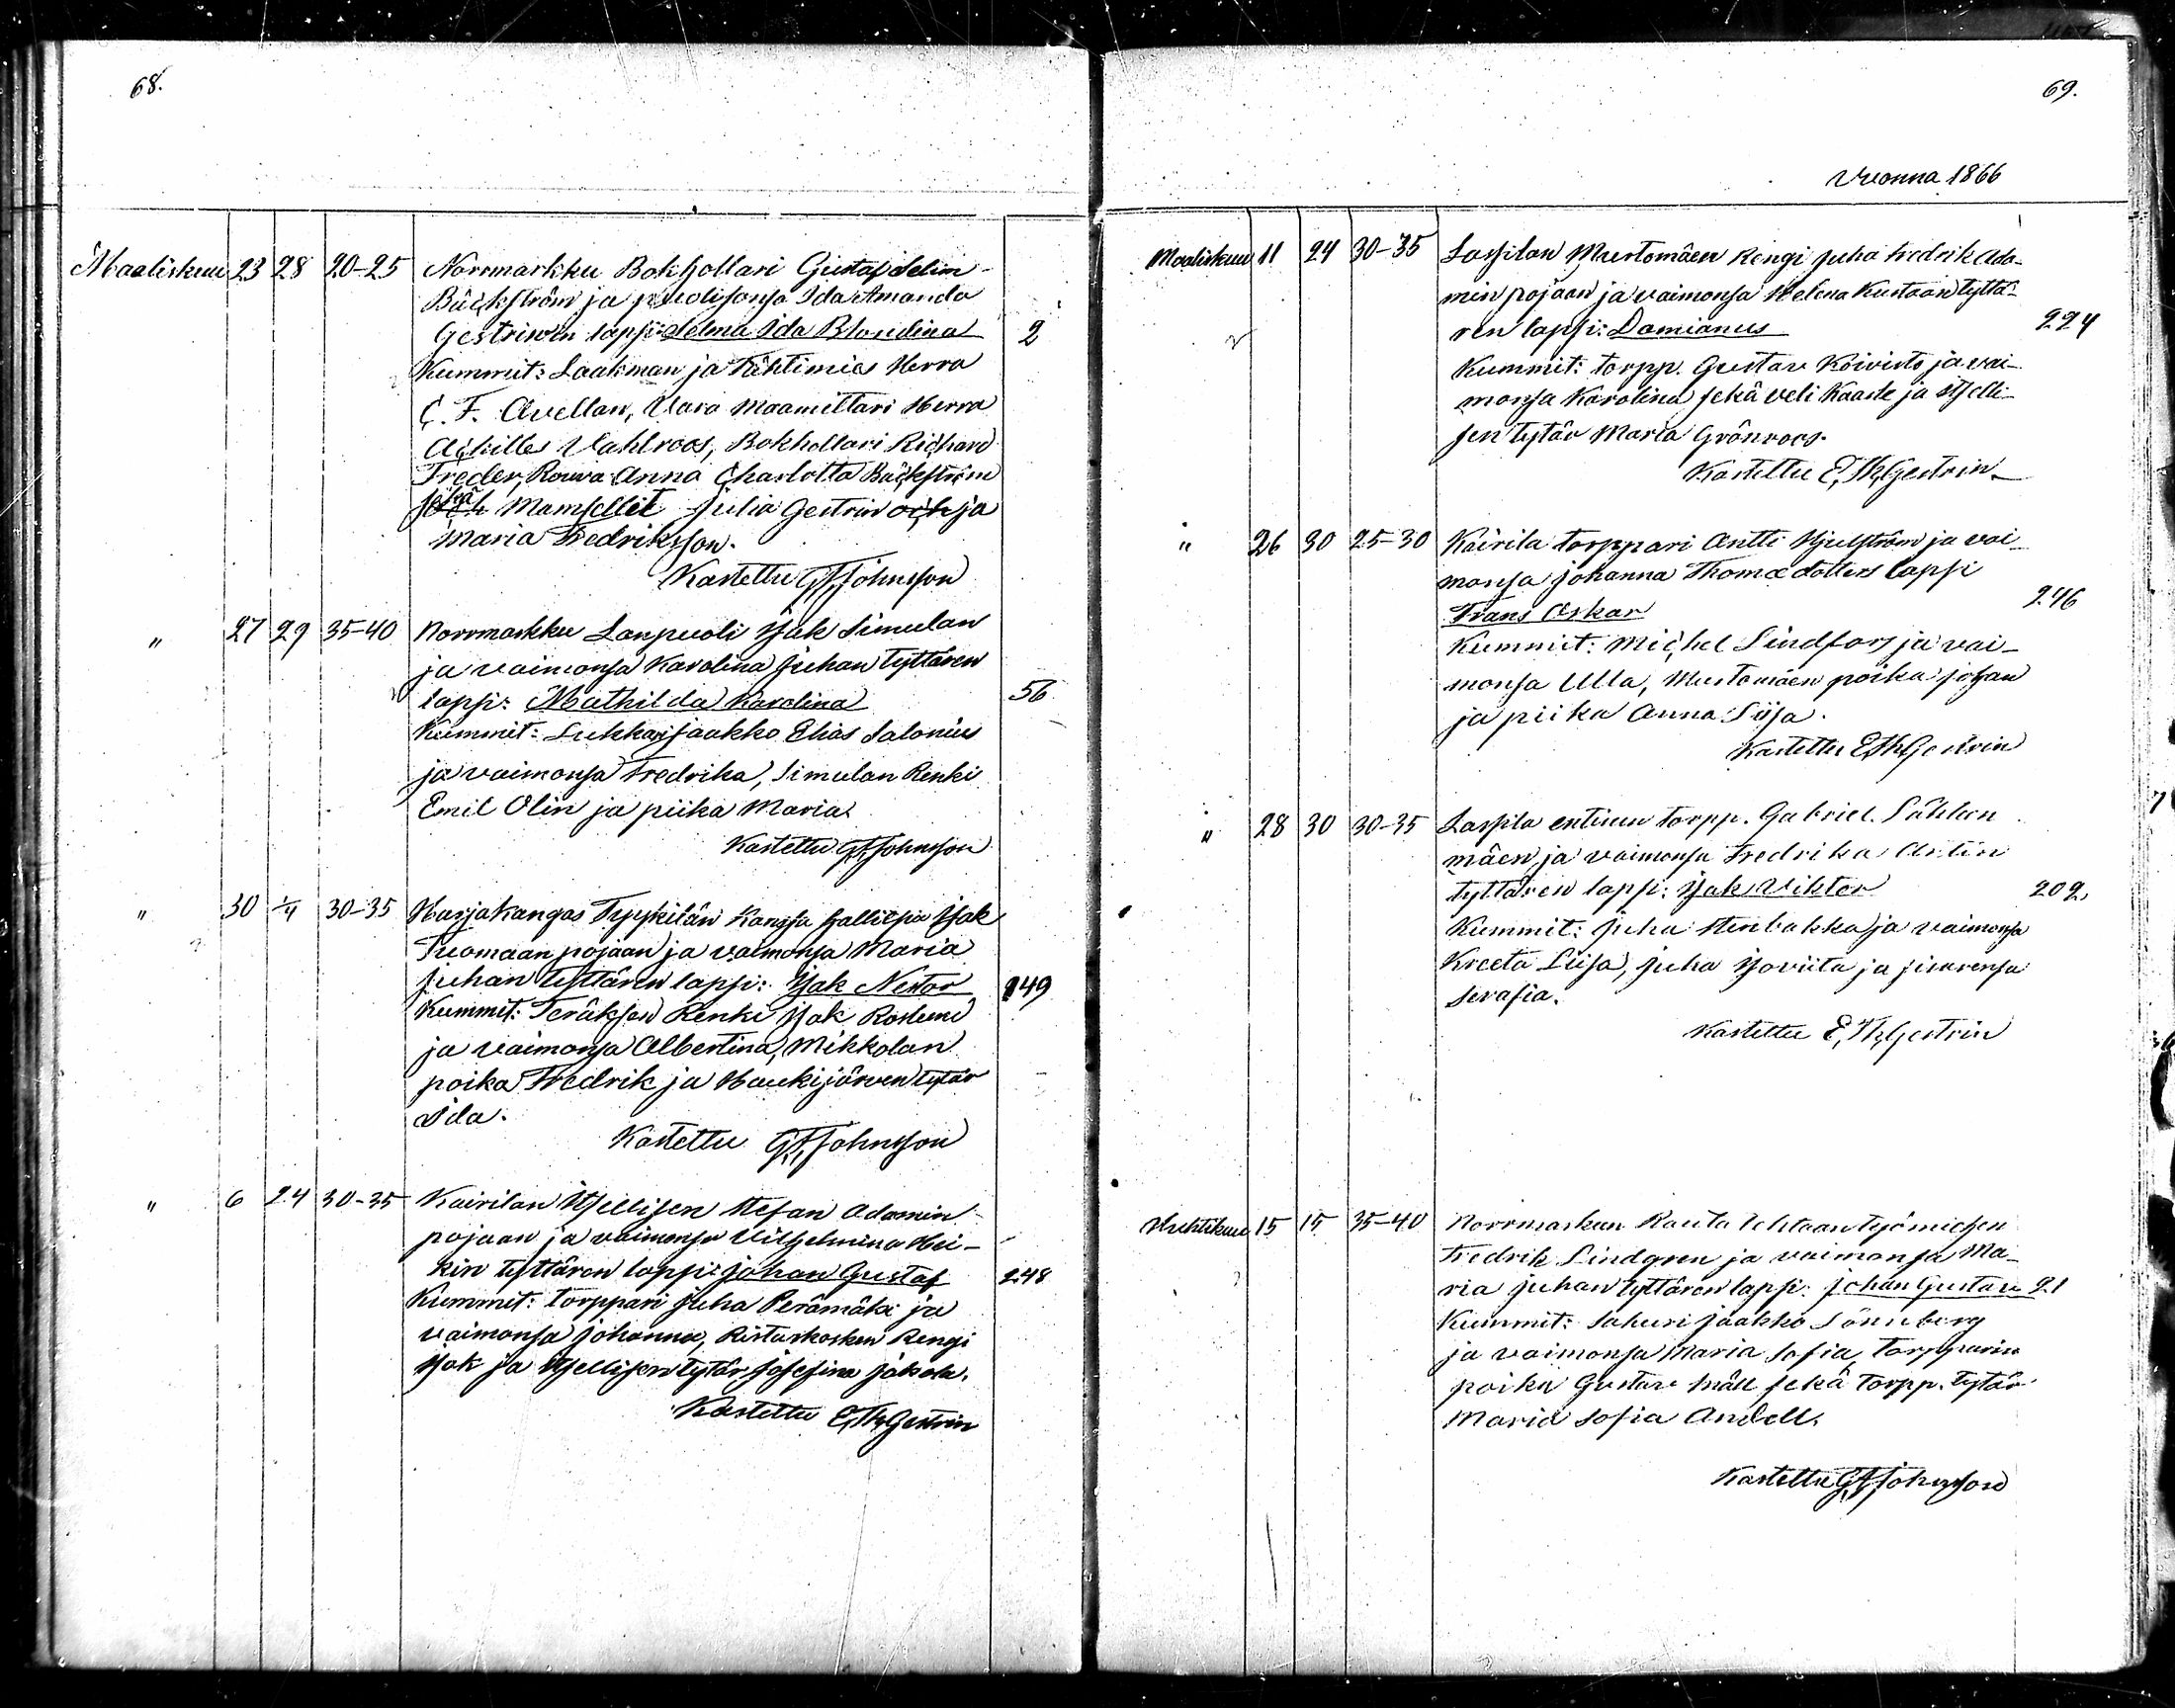 68.
Maaliskuu 23 28 20-25 Norrmarkku Bokhollari Gustaf Selim
Bäckström ja puolisonsa Ida Amanda
Gestrinin lapsi: Selma Ida Blondina 2
Kummit: Laakman ja Tähtimies Herra
C. F. Avellan, Vara Maamittari Herra
Achilles Vahlroos, Bokhollari Richard
Treder, Rouva Anna Charlotta Bäckström
sekä Mamsellit Julia Gestrin och ja
Maria Fredriksson.
Kastettu G.A. Johnsson
" 27 29 35-40 Norrmarkku Lanpuoli Isak Simulan
ja vaimonsa Karolina Juhan tyttären
lapsi: Mathilda Karolina 56
Kummit: Lukkari Jaakko Elias Salonius
ja vaimonsa Fredrika, Simulan Renki
Emil Olin ja piika Maria.
Kastettu G.A. Johnsson
" 30 1/4 30-35 Harjakangas Tyykilän Kanssa hallitsia Isak
Tuomaan pojaan ja vaimonsa Maria
Juhan tyttären lapsi: Isak Nestor 149
Kummit: Teräksen Renki Isak Roslund
ja vaimonsa Albertina, Mikkolan
poika Fredrik ja Haukijärven tytär
Ida.
Kastettu G.A. Johnsson
" 6 24 30-35 Kairilan Itsellisen Stefan Adamin
pojaan ja vaimonsa Vilhelmina Hei-
kin tyttären lapsi: Johan Gustaf 248
Kummit: torppari Juha Perämäki ja
vaimonsa Johanna, Ristuskosken Rengi
Isak ja Itsellisen tytär Josefina Jakola.
Kastettu E. Th. Gestrin
69.
Vuonna 1866
Maaliskuu 11 24 30-35 Lassilan Mustomäen Rengi Juha Fredrik Ada-
min pojaan ja vaimonsa Helena Kustaan tyttä-
ren lapsi: Damianus 224
Kummit: torpp. Gustav Koivisto ja vai-
monsa Karolina sekä veli Kaarle ja itselli-
sen tytär Maria Grönroos.
Kastettu E. Th. Gestrin
" 26 30 25-30 Kairila torppari Antti Hjulström ja vai-
monsa Johanna Thomædotters lapsi
Frans Oskar 246
Kummit: Michel Lindfors ja vai-
monsa Ulla, Mustomäen poika Johan
ja piika Anna Liisa.
Kastettu E. Th. Gestrin
" 28 30 30-35 Lassila entinen torpp. Gabriel Lähteen
mäen ja vaimonsa Fredrika Antin
tyttären lapsi: Isak Vihtor 202
Kummit: Juha Stenbakka ja vaimonsa
Kreeta Liisa, Juha Yoviita ja sisarensa
Serafia.
Kastettu E. Th. Gestrin
Huhtikuu 15 15 35-40 Norrmarkun Rauta tehtaan työmiehen
Fredrik Lindgren ja vaimonsa Ma-
ria Juhan tyttären lapsi: Johan Gustav 21
Kummit: Sahuri Jaakko Sönnberg
ja vaimonsa Maria Sofia, torpparin
poika Gustav Mäll sekä torpp. tytär
Maria Sofia Andell.
Kastettu G.A. Johnsson